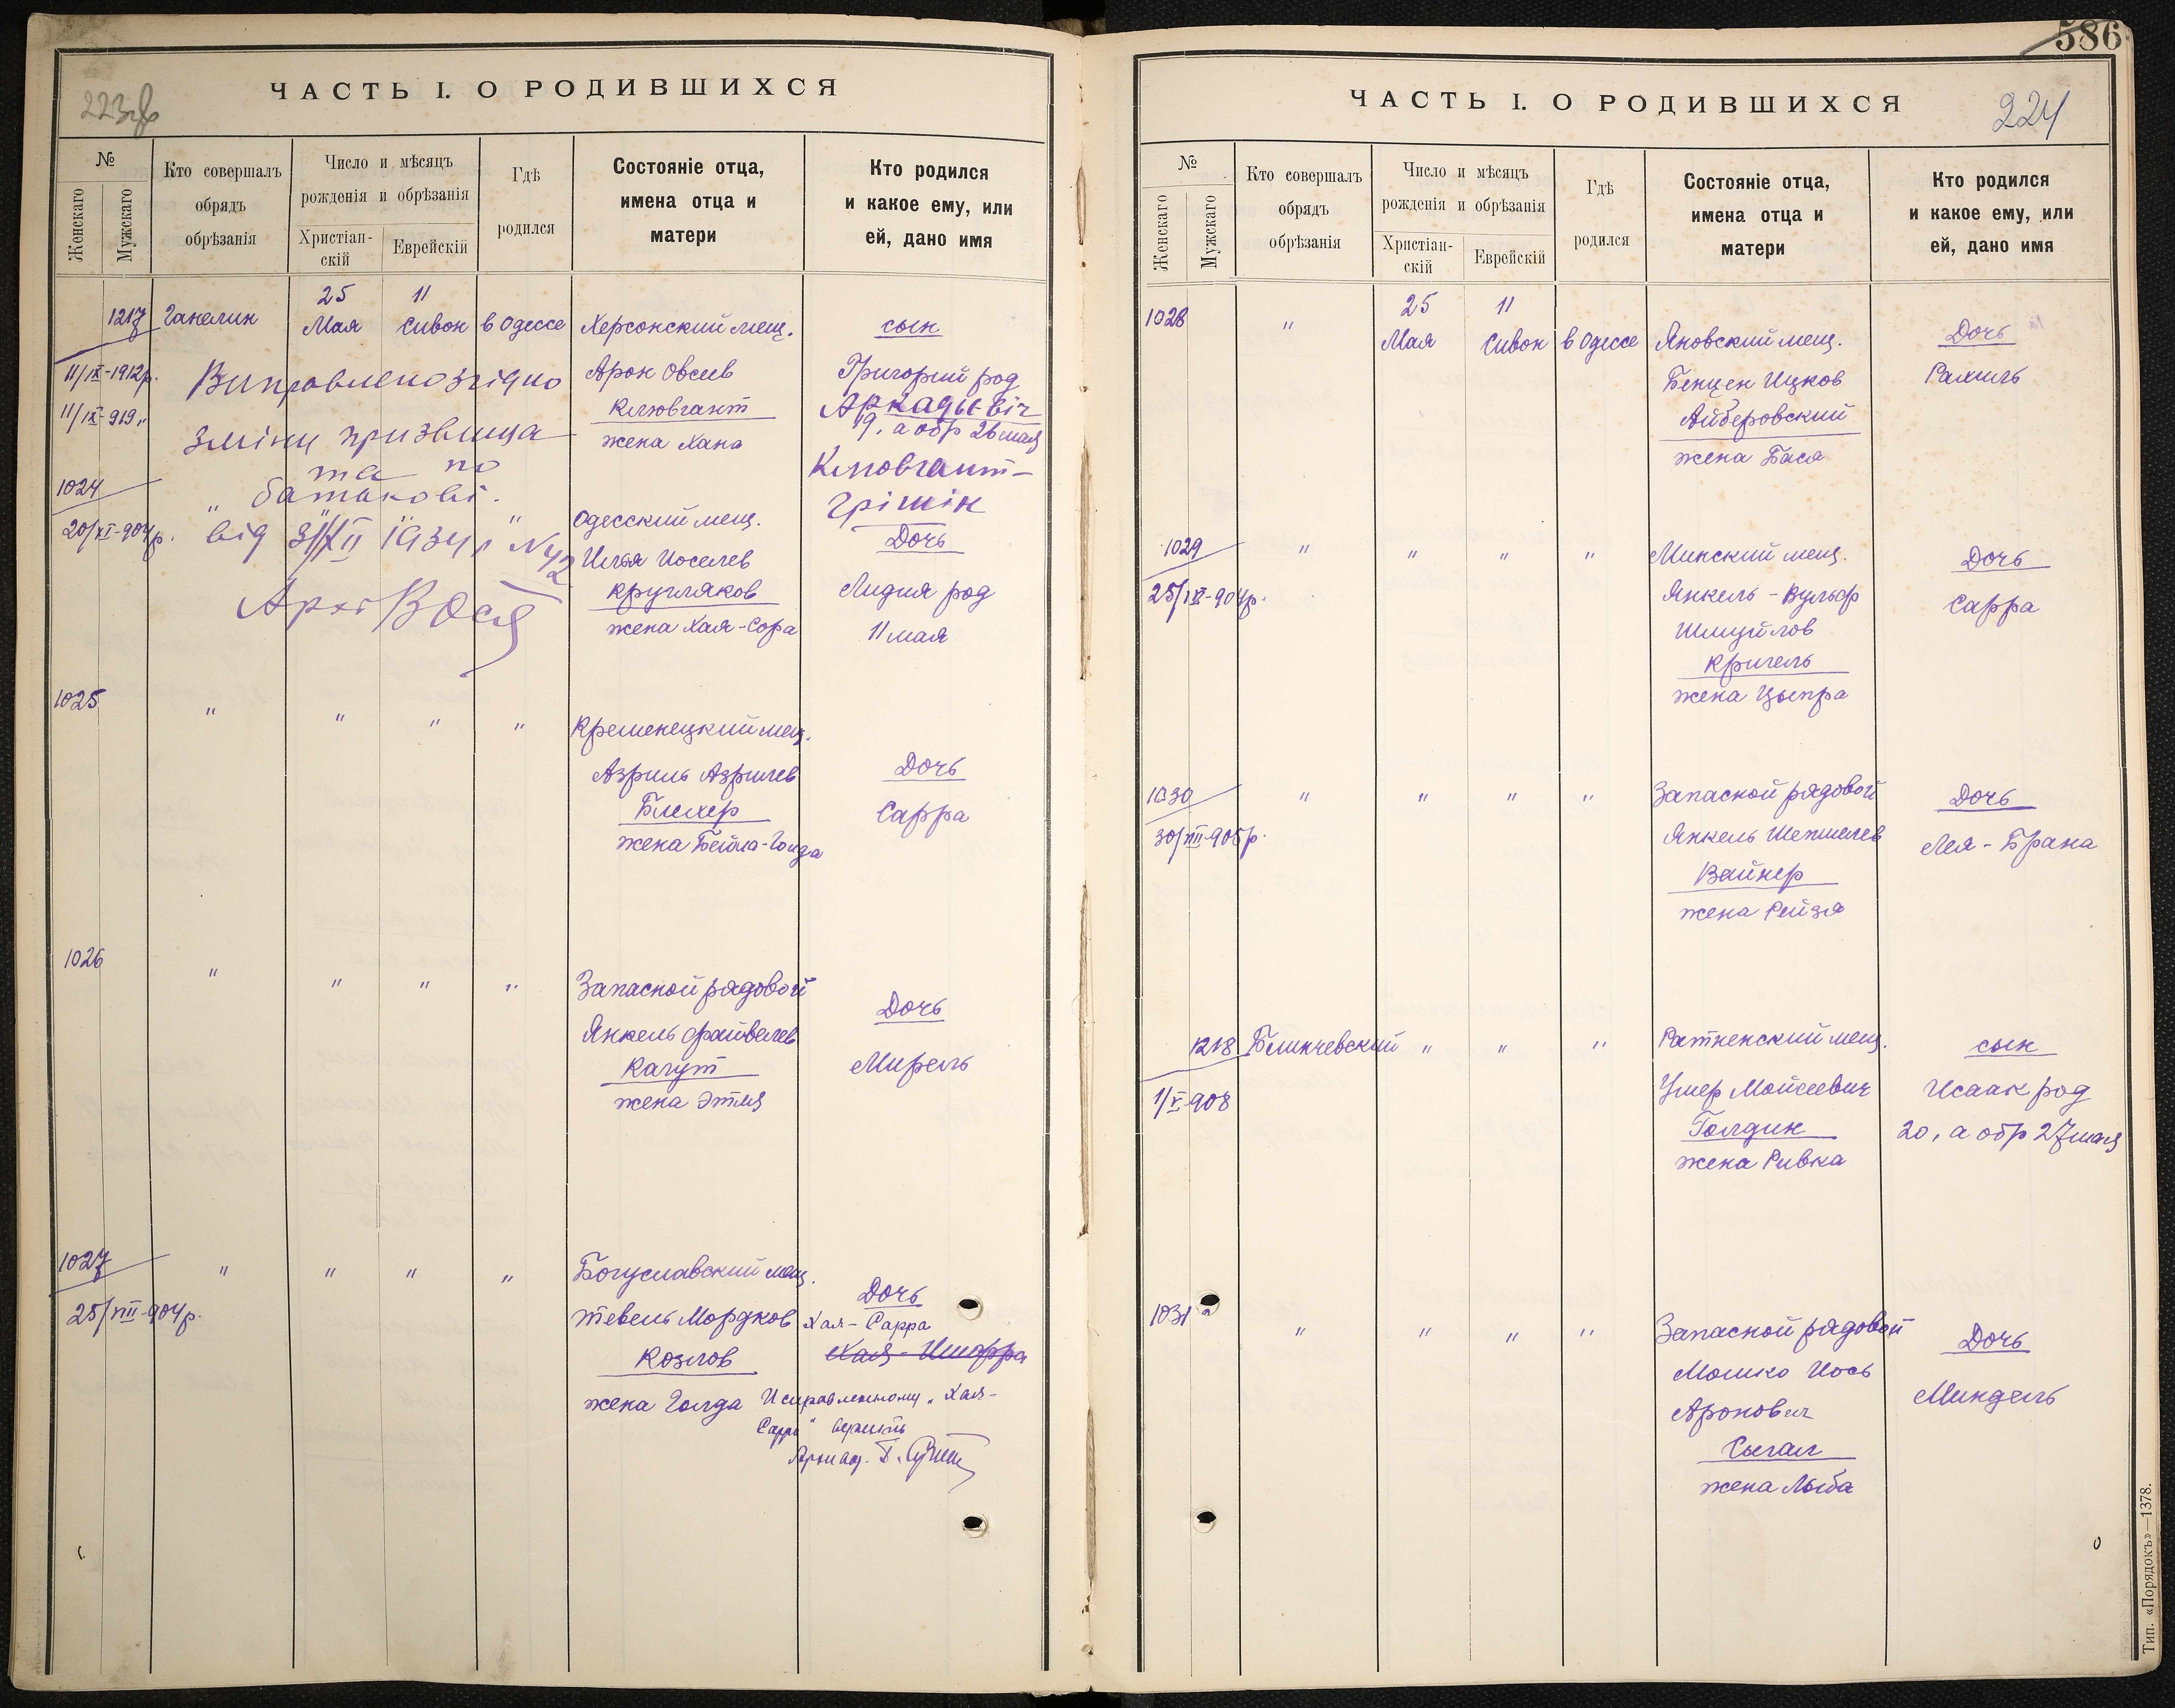 ЧАСТЬ I. О РОДИВШИХСЯ
№
Женскаго
Мужскаго
Кто совершалъ
обрядъ
обрѣзанія
Число и мѣсяцъ
рожденія и обрѣзанія
Христіан-
скій
Еврейскій
Гдѣ
родился
Состояніе отца,
имена отца и
матери
Кто родился
и какое ему, или
ей, дано имя
25 11
1217 Ганелин Мая Сивон в Одессе Херсонский мещ. сын
11/IX-1912р. Виправлено згідно Арон Овсеев Григорий род
11/IX-919 Клювгант Аркадьевіч
зміни призвища жена Хана 19, а обр 26 мая
та по Клювгант-
1024 " батькові. Грішін
20/XI-904р. від 31/XII 1934 р N42 " Одесский мещ. Дочь
Илья Иоселев
Кругляков Лидия род
жена Хая-Сора 11 мая
1025 " " " " Кременецкий мещ.
Азриль Азрилев Дочь
Блехер Сарра
жена Бейла-Голда
1026 " " " " Запасной рядовой
Дочь
Янкель Файвелев
Качут Мирель
жена Этля
1027 " " " " Богуславский мещ.
Дочь
25/VIII-904р. Тевель Мордков Хая-Сарра
Козлов
жена Голда Исправленному „Хая-
Сарра“ верить
586
ЧАСТЬ I. О РОДИВШИХСЯ
224
№
Женскаго
Мужскаго
Кто совершалъ
обрядъ
обрѣзанія
Число и мѣсяцъ
рожденія и обрѣзанія
Христіан-
скій
Еврейскій
Гдѣ
родился
Состояніе отца,
имена отца и
матери
Кто родился
и какое ему, или
ей, дано имя
25 11
1028 " Мая Сивон в Одессе Яновский мещ. Дочь
Бенцен Ицков Рахиль
Айберовский
жена Бася
1029 " " " " Минский мещ. Дочь
25/IX-904р. Янкель-Вульф Сарра
Шмуйлов
Кригель
жена Цыпра
1030 " " " " Запасной рядовой Дочь
30/VIII-905р. Янкель Шепшелев Лея-Брана
Вайнер
жена Рейзя
1218 Блинчевский " " " Ратненский мещ. сын
1/V-908 Умер Мойсеевич Исаак род
Голдин 20, а обр 27 мая
жена Ривка
1031 " " " " Запасной рядовой Дочь
Мошко Иось
Аронович Миндель
Сыгал
жена Лыба
Тип. «Порядокъ»—1378.